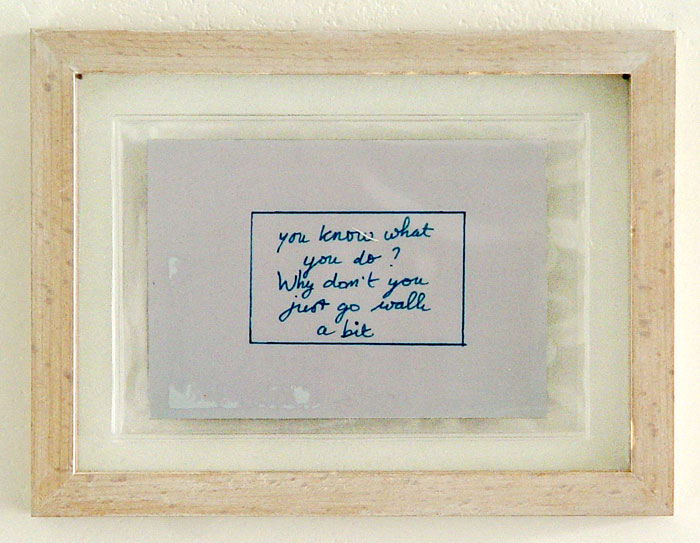 you know what
you do?
Why don't you
just go walk
a bit